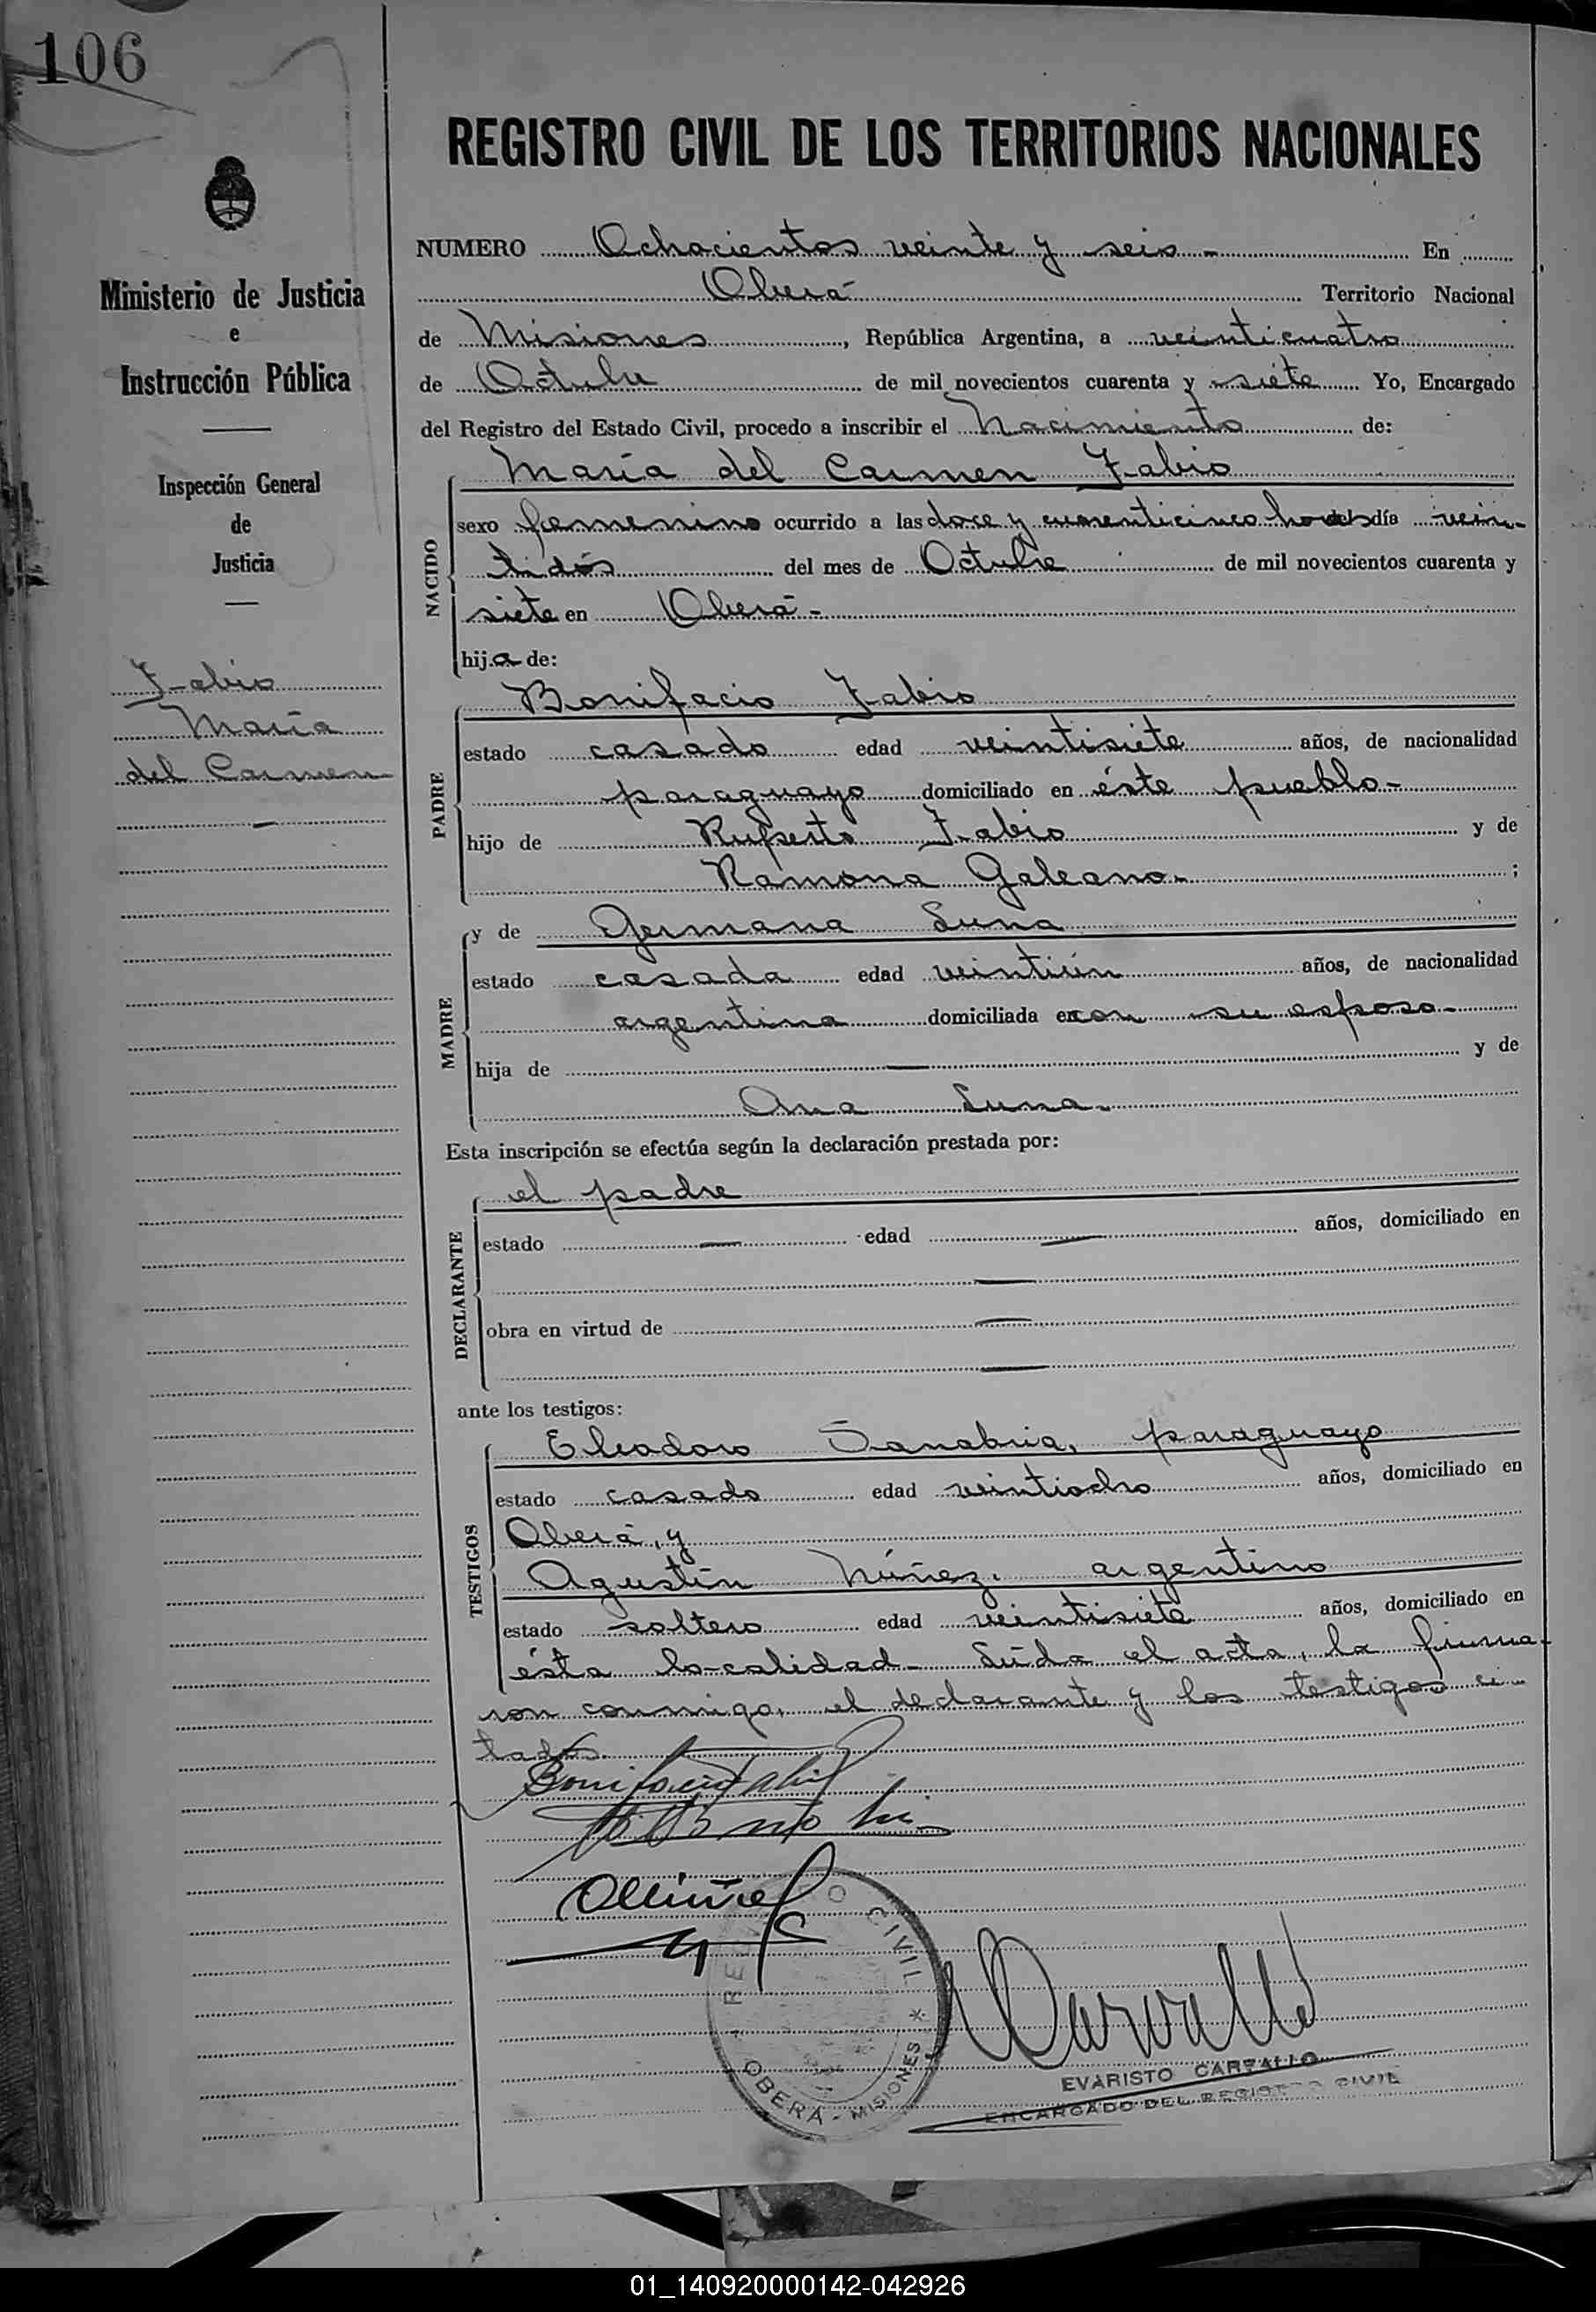 106
REGISTRO CIVIL DE LOS TERRITORIOS NACIONALES
Ministerio de Justicia
e
Instrucción Pública
Inspección General
de
Justicia
Fabio
María
del Carmen
NUMERO Ochocientos veinte y seis - En
Oberá Territorio Nacional
de Misiones, República Argentina, a veinticuatro
de Octubre de mil novecientos cuarenta y siete Yo, Encargado
del Registro del Estado Civil, procedo a inscribir el Nacimiento de:
NACIDO
María del Carmen Fabio
sexo femenino ocurrido a las doce y cuarenticinco horas del día vein-
tidós del mes de Octubre de mil novecientos cuarenta y
siete en Oberá -
hija de:
PADRE
Bonifacio Fabio
estado casado edad veintisiete años, de nacionalidad
paraguayo domiciliado en éste pueblo -
hijo de Ruperto Fabio y de
Ramona Galeano - ;
MADRE
y de Germana Luna
estado casada edad veintiún años, de nacionalidad
argentina domiciliada en con su esposo -
hija de — y de
Ana Luna.
Esta inscripción se efectúa según la declaración prestada por:
DECLARANTE
el padre
estado — edad — años, domiciliado en
—
obra en virtud de —
—
ante los testigos:
TESTIGOS
Eleodoro Sanabria, paraguayo
estado casado edad veintiocho años, domiciliado en
Oberá, y
Agustín Núñez, argentino
estado soltero edad veintisiete años, domiciliado en
ésta localidad - Leída el acta, la firma-
ron conmigo, el declarante y los testigos ci-
tados.
Bonifacio Fabio
REGISTRO CIVIL
OBERÁ - MISIONES
EVARISTO CARVALLO
ENCARGADO DEL REGISTRO CIVIL
01_140920000142-042926